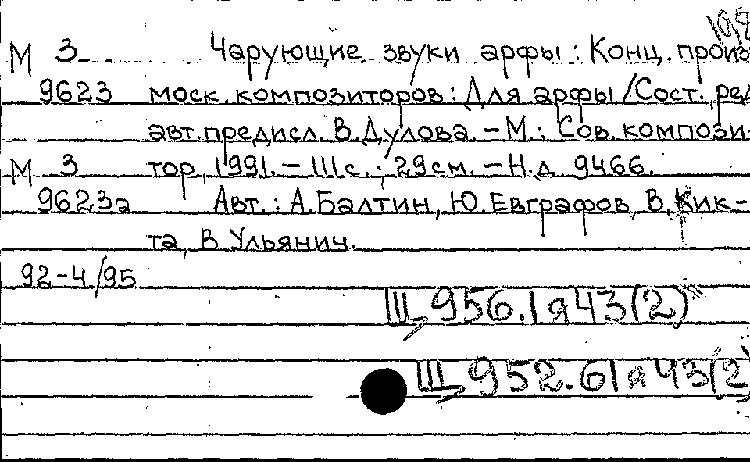 М 3 Чарующие звуки арфы : Конц. произ
9623 моск. композиторов : Для арфы / Сост., ред
авт. предисл. В. Дулова. – М. : Сов. компози-
М 3 тор, 1991. – 111 с. ; 29 см. – Н.д. 9466.
9623а Авт. : А. Балтин, Ю. Евграфов, В. Кик-
та, В. Ульянич.
92-4/95
Щ956.1я43(2)
Щ952.61я43(2)